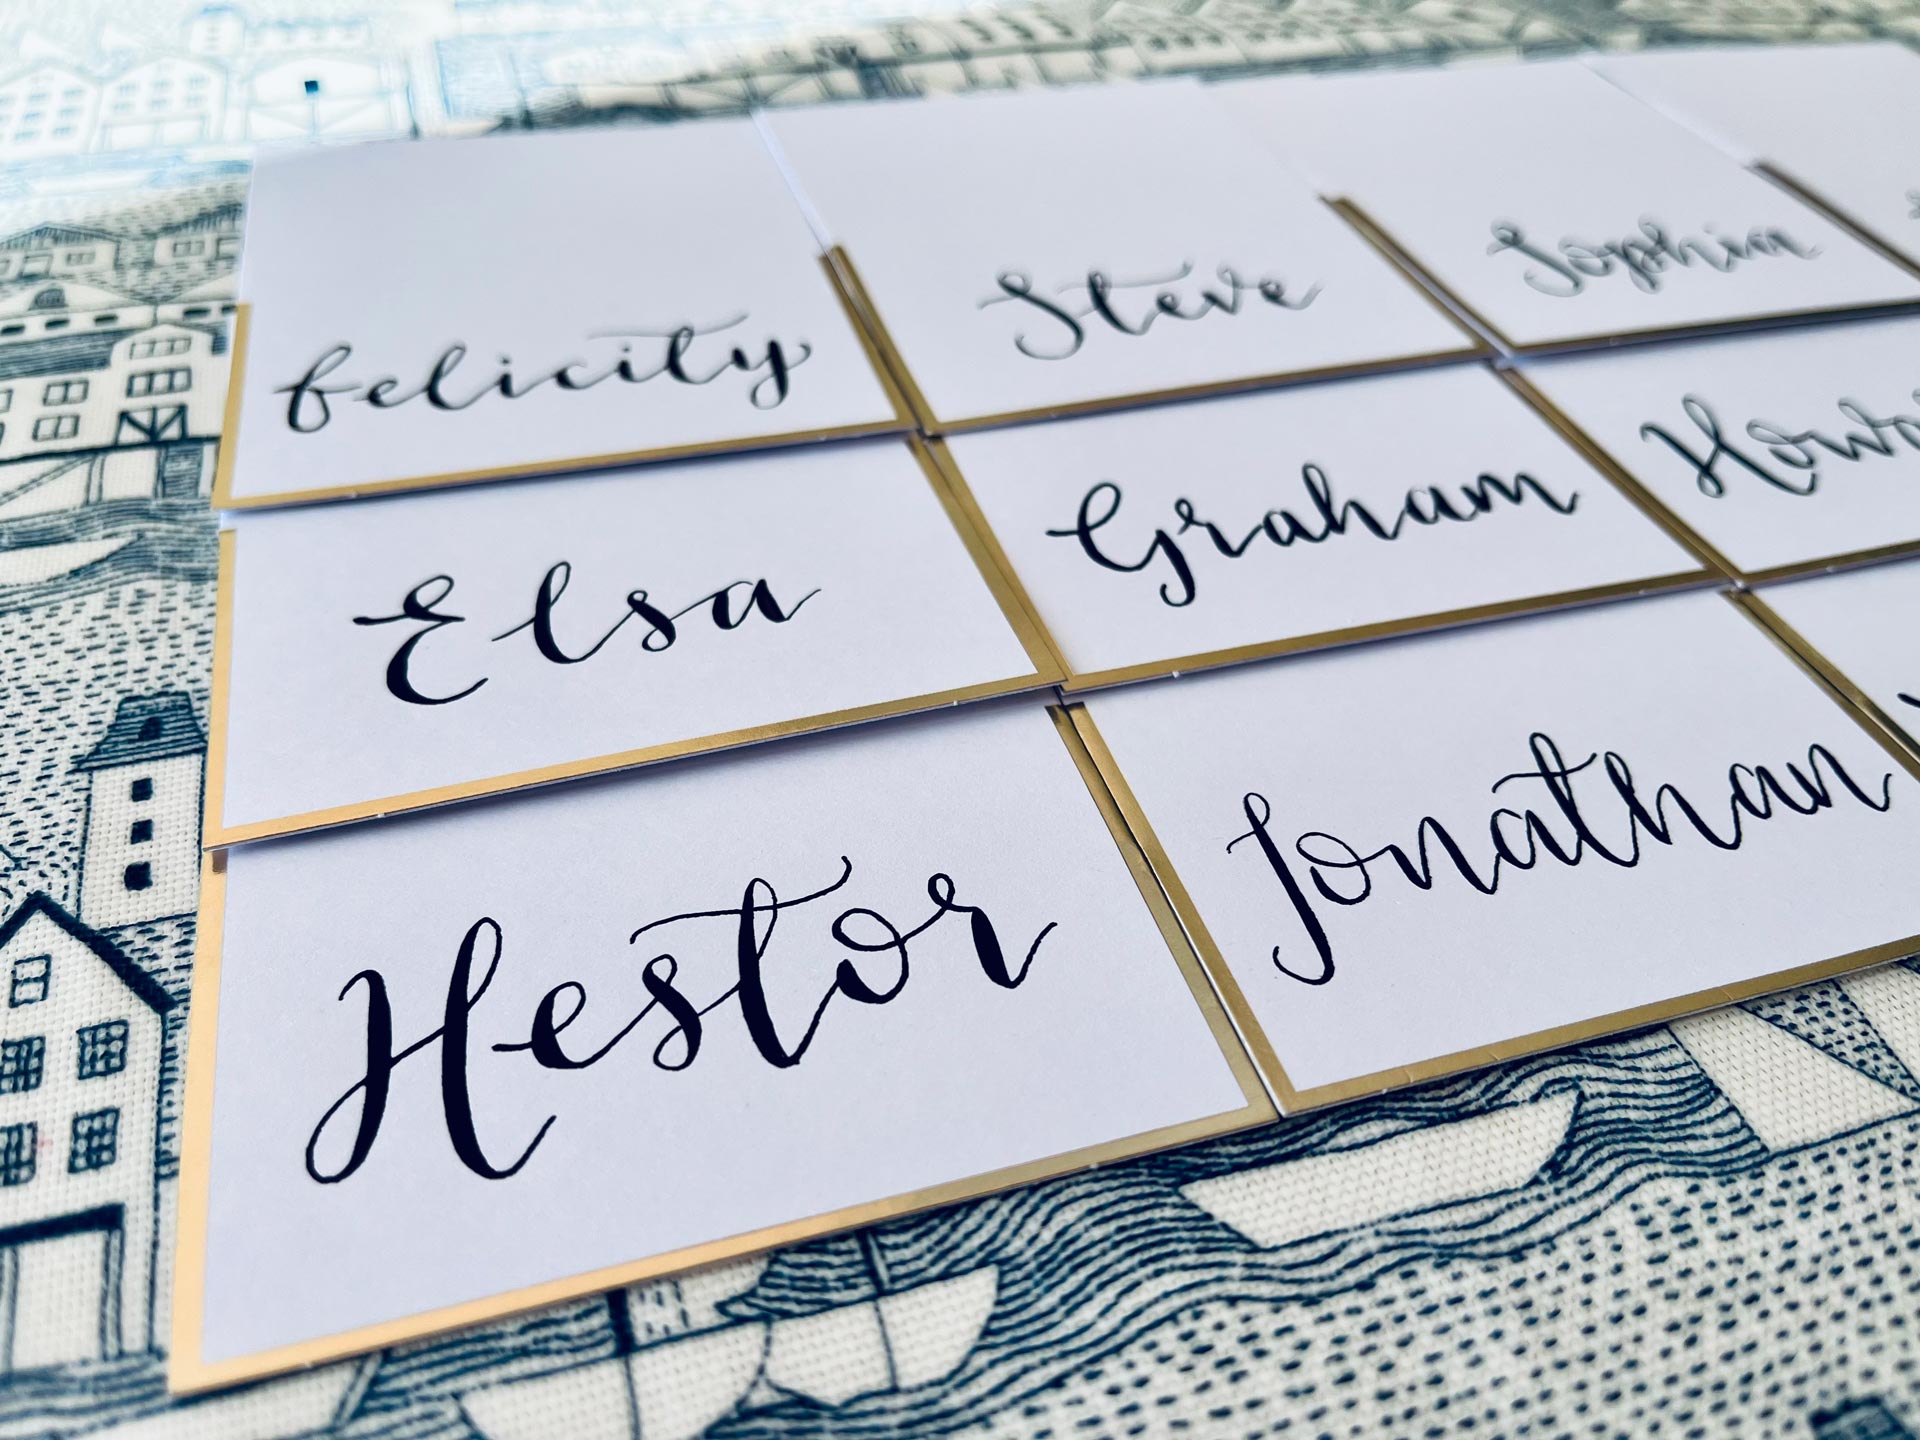 felicity Steve Sophia
Elsa Graham
Hestor Jonathan